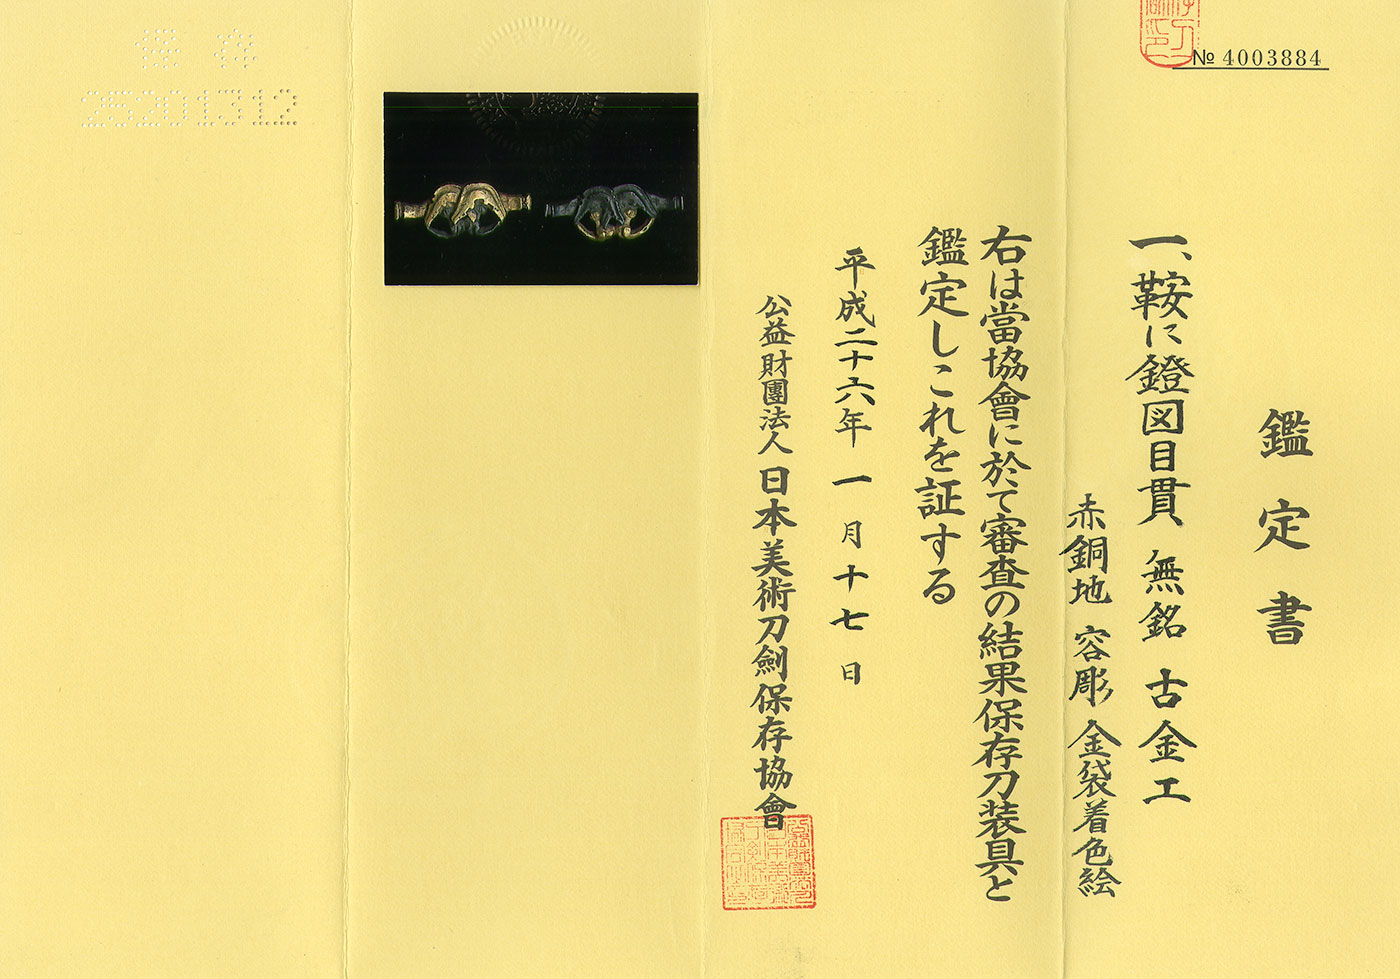 № 4003884
鑑定書
一、鞍に鐙図目貫 無銘 古金工
赤銅地 容彫 金袋着色絵
右は當協會に於て審査の結果保存刀装具と
鑑定しこれを証する
平成二十六年一月十七日
公益財團法人 日本美術刀劍保存協會
保存
25201312